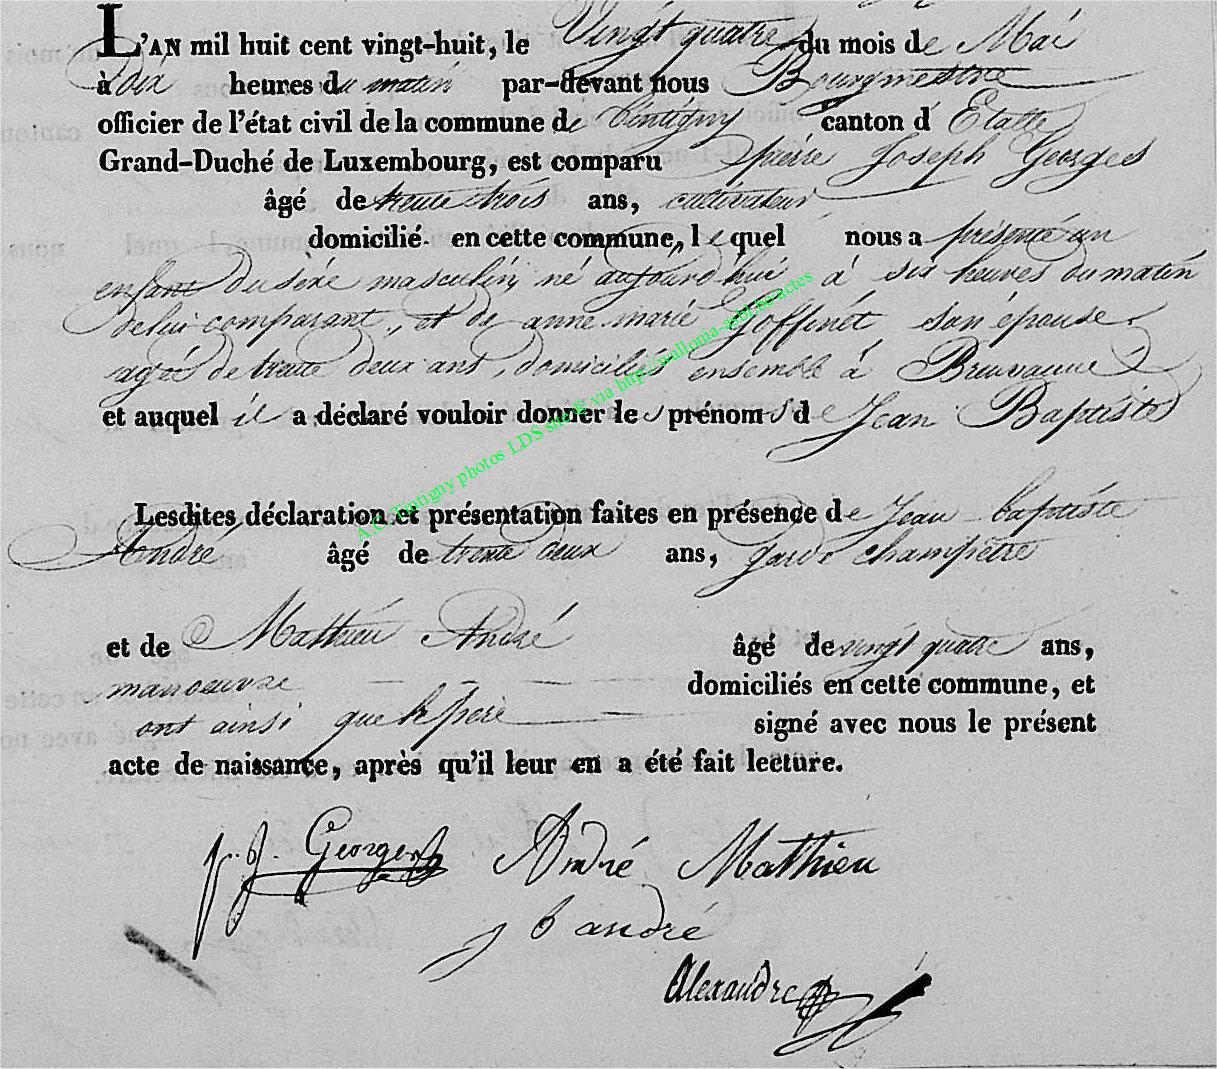 L'AN mil huit cent vingt-huit, le Vingt quatre du mois de Mai
à dix heures du matin par-devant nous Bourgmestre
officier de l'état civil de la commune de Tintigny canton d' Etalle
Grand-Duché de Luxembourg, est comparu pierre Joseph Georges
âgé de trente trois ans, cultivateur
domicilié en cette commune, le quel nous a présenté un
enfant du sexe masculin, né aujourd'hui à six heures du matin
de lui comparant, et de anne marie Goffinet son épouse
agée de trente deux ans, domiciliés ensemble à Breuvanne
et auquel il a déclaré vouloir donner les prénoms de Jean Baptiste
A.C. Tintigny photos LDS site © via http://wallonia-asbl.be/actes
Lesdites déclaration et présentation faites en présence de Jean baptiste
André âgé de trente deux ans, garde champêtre
et de Mathieu André âgé de vingt quatre ans,
manoeuvre domiciliés en cette commune, et
ont ainsi que le père signé avec nous le présent
acte de naissance, après qu'il leur en a été fait lecture.
p. J. Georges André Mathieu
j b andré
Alexandre